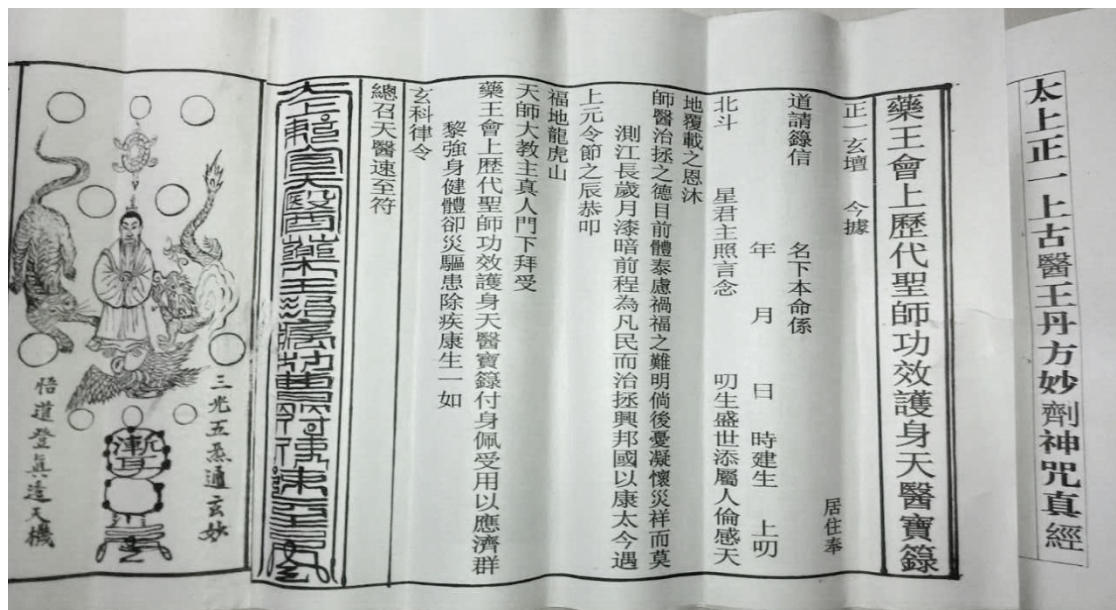 太上正一上古醫王丹方妙劑神咒真經
藥王會上歷代聖師功效護身天醫寶籙
正一玄壇 今據
居住奉
道請籙信 名下本命係
年 月 日 時建生 上叨
北斗 星君主照言念 叨生盛世添屬人倫感天
地覆載之恩沐
師醫治拯之德目前體泰慮禍福之難明倘後憂凝懷災祥而莫
測江長歲月漆暗前程為凡民而治拯興邦國以康太今遇
上元令節之辰恭叩
福地龍虎山
天師大教主真人門下拜受
藥王會上歷代聖師功效護身天醫寶籙付身佩受用以應濟群
黎強身健體卻災驅患除疾康生一如
玄科律令
總召天醫速至符
三光五炁通玄妙
悟道登真造天機